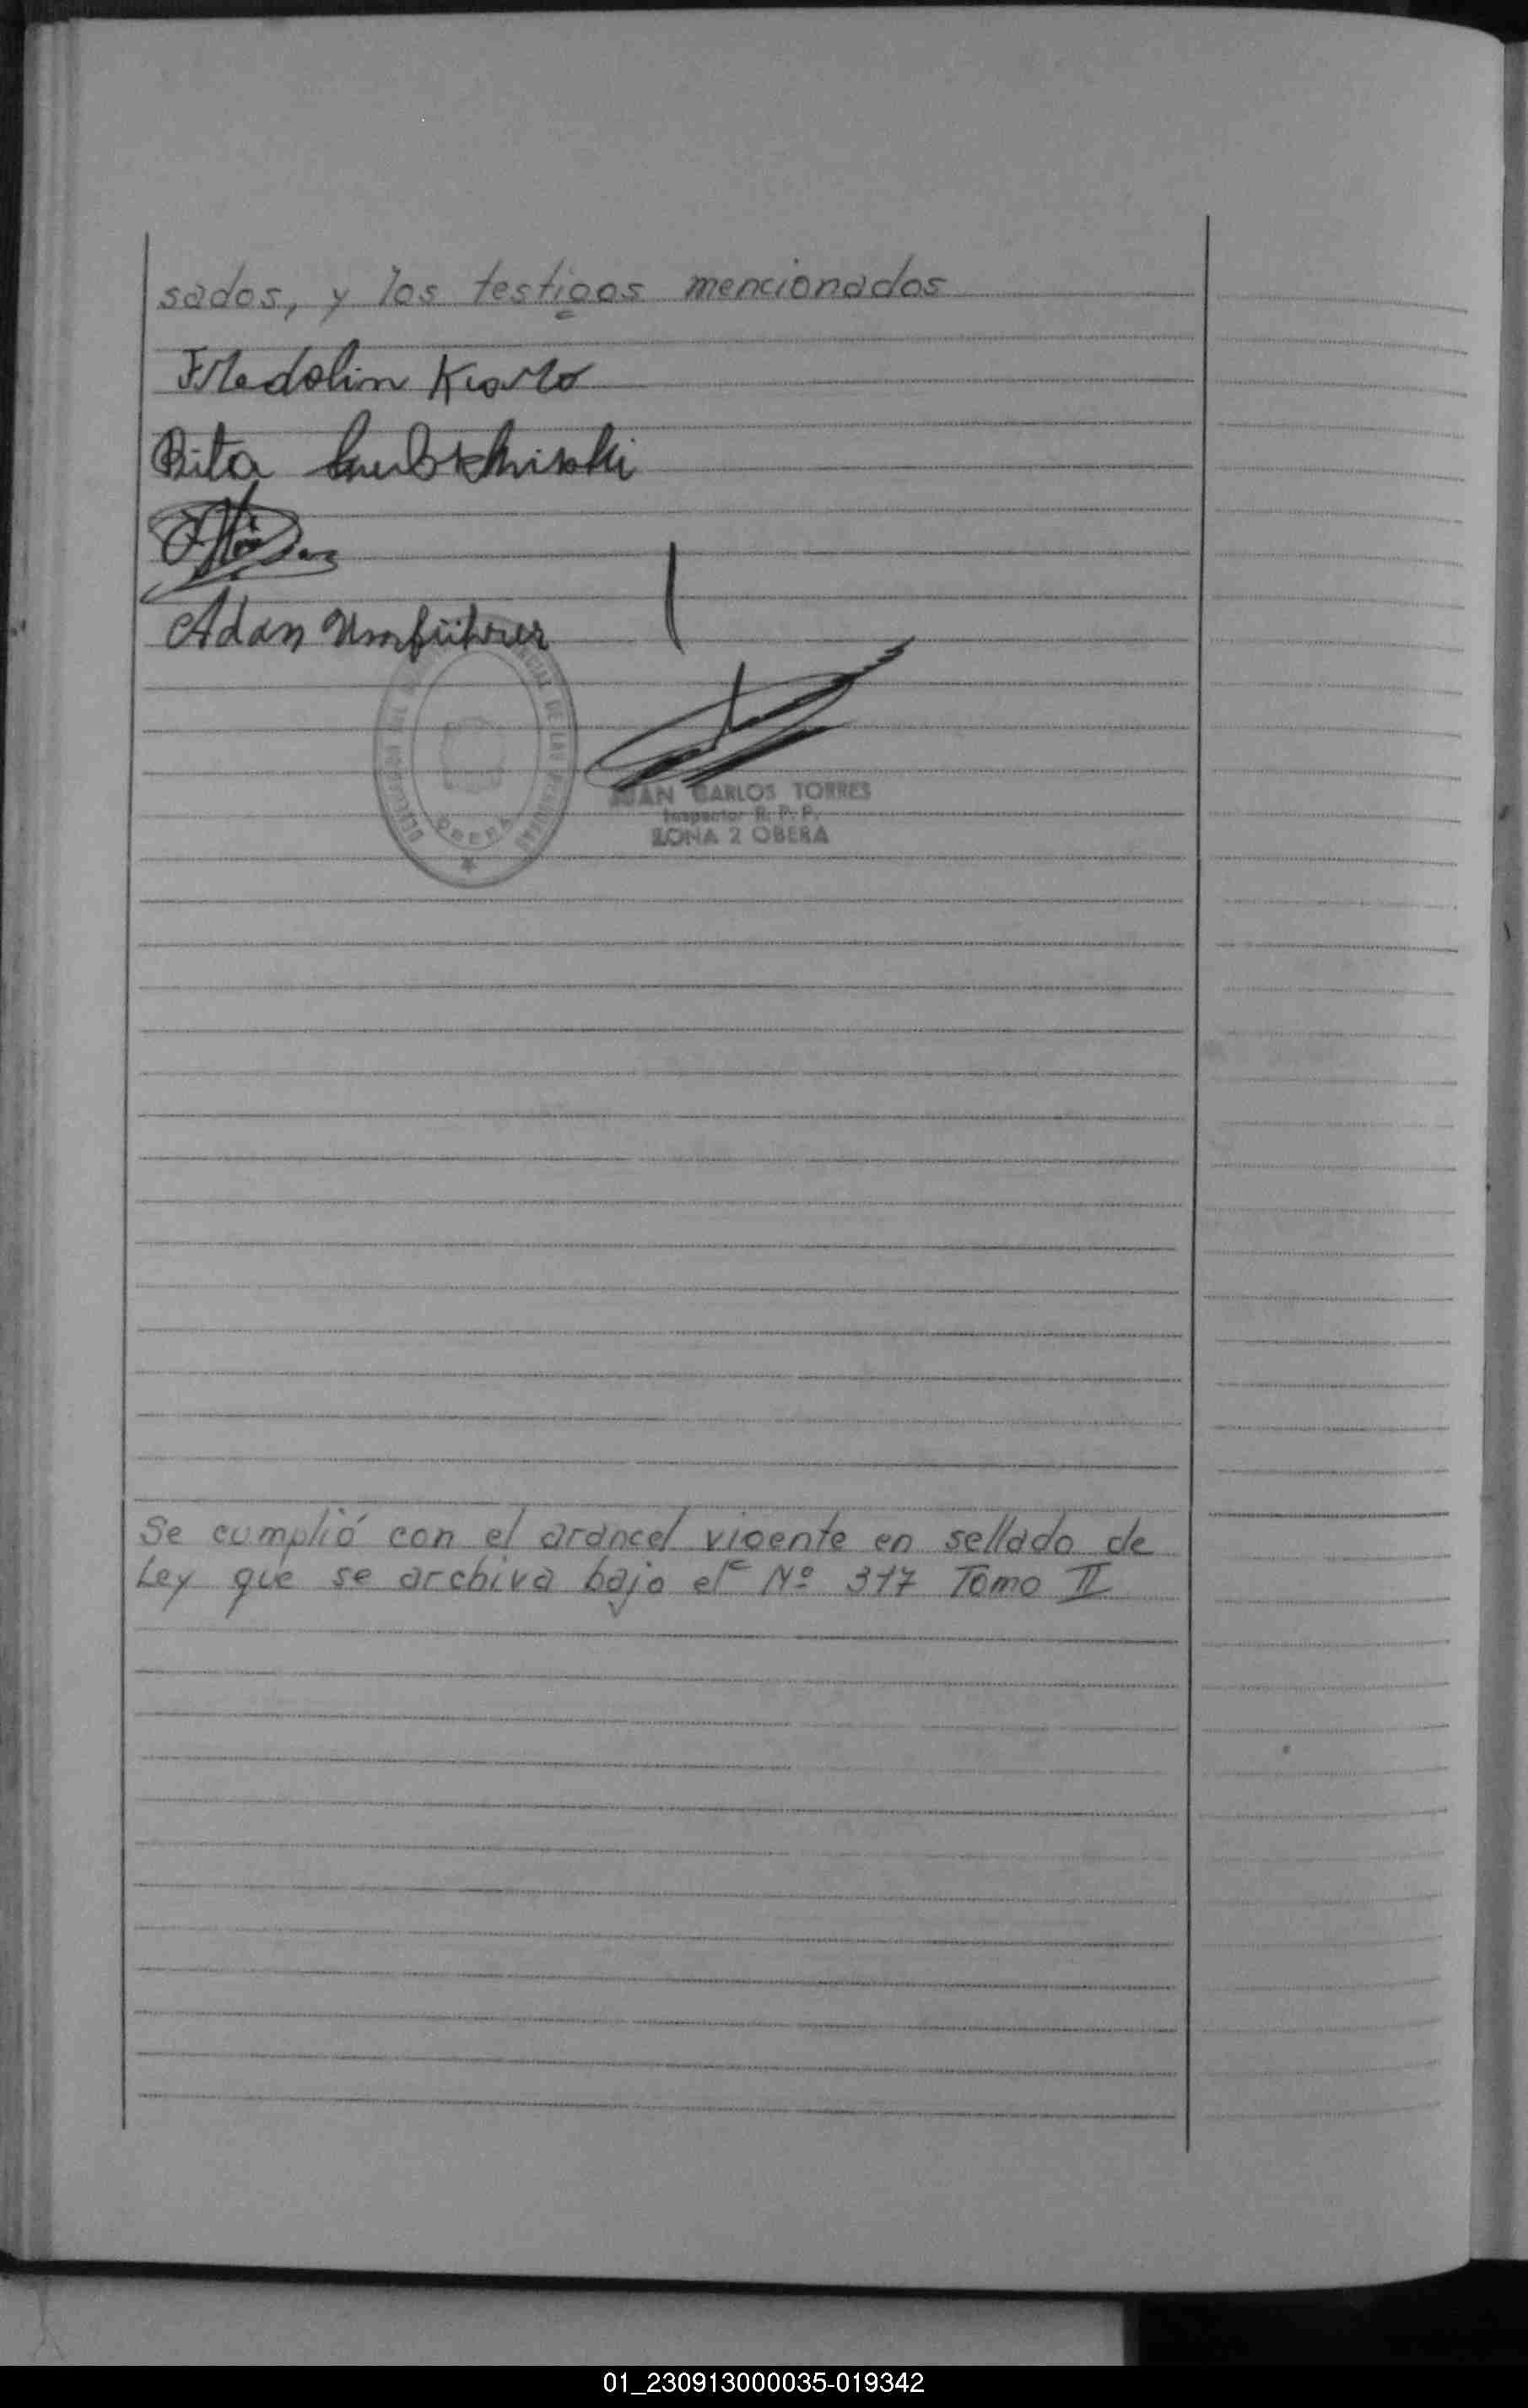 sados, y los testigos mencionados
Fredolin
Rita
Adan Umführer
DE LAS PERSONAS
OBERA
JUAN CARLOS TORRES
Inspector R. P. P.
ZONA 2 OBERA
Se cumplió con el arancel vigente en sellado de
Ley que se archiva bajo el Nº 317 Tomo II
01_230913000035-019342